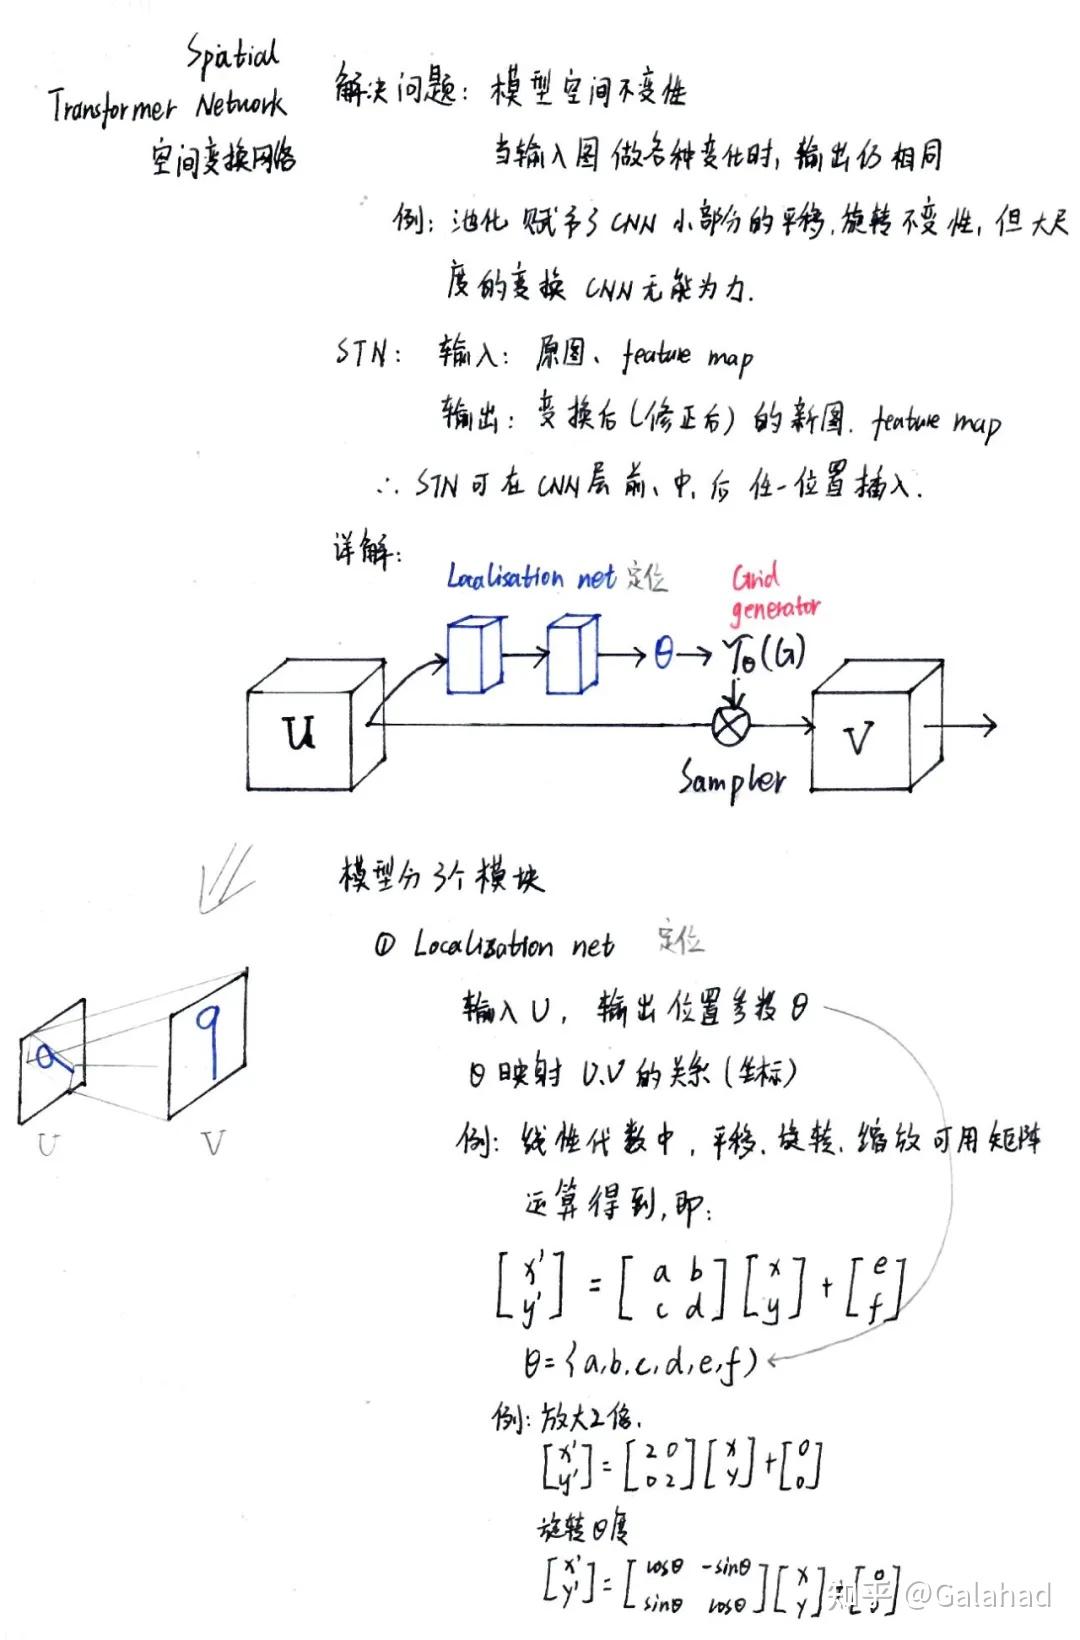 Spatial
Transformer Network
空间变换网络
解决问题: 模型空间不变性
当输入图做各种变化时, 输出仍相同
例: 池化赋予了CNN小部分的平移,旋转不变性, 但大尺
度的变换 CNN无能为力.
STN: 输入: 原图、feature map
输出: 变换后(修正后)的新图. feature map
∴ STN可在CNN层前、中、后任一位置插入.
详解:
Localisation net 定位
Grid
generator
θ
T_θ(G)
U
V
Sampler
模型分3个模块
① Localization net 定位
输入U, 输出位置参数θ
θ映射 U.V 的关系(坐标)
U
V
例: 线性代数中, 平移、旋转、缩放可用矩阵
运算得到,即:
[x' y'] = [a b c d] [x y] + [e f]
θ={a,b,c,d,e,f)
例: 放大2倍.
[x' y'] = [2 0 0 2] [x y] + [0 0]
旋转θ度
[x' y'] = [cosθ -sinθ sinθ cosθ] [x y] + [0 0]
知乎 @Galahad